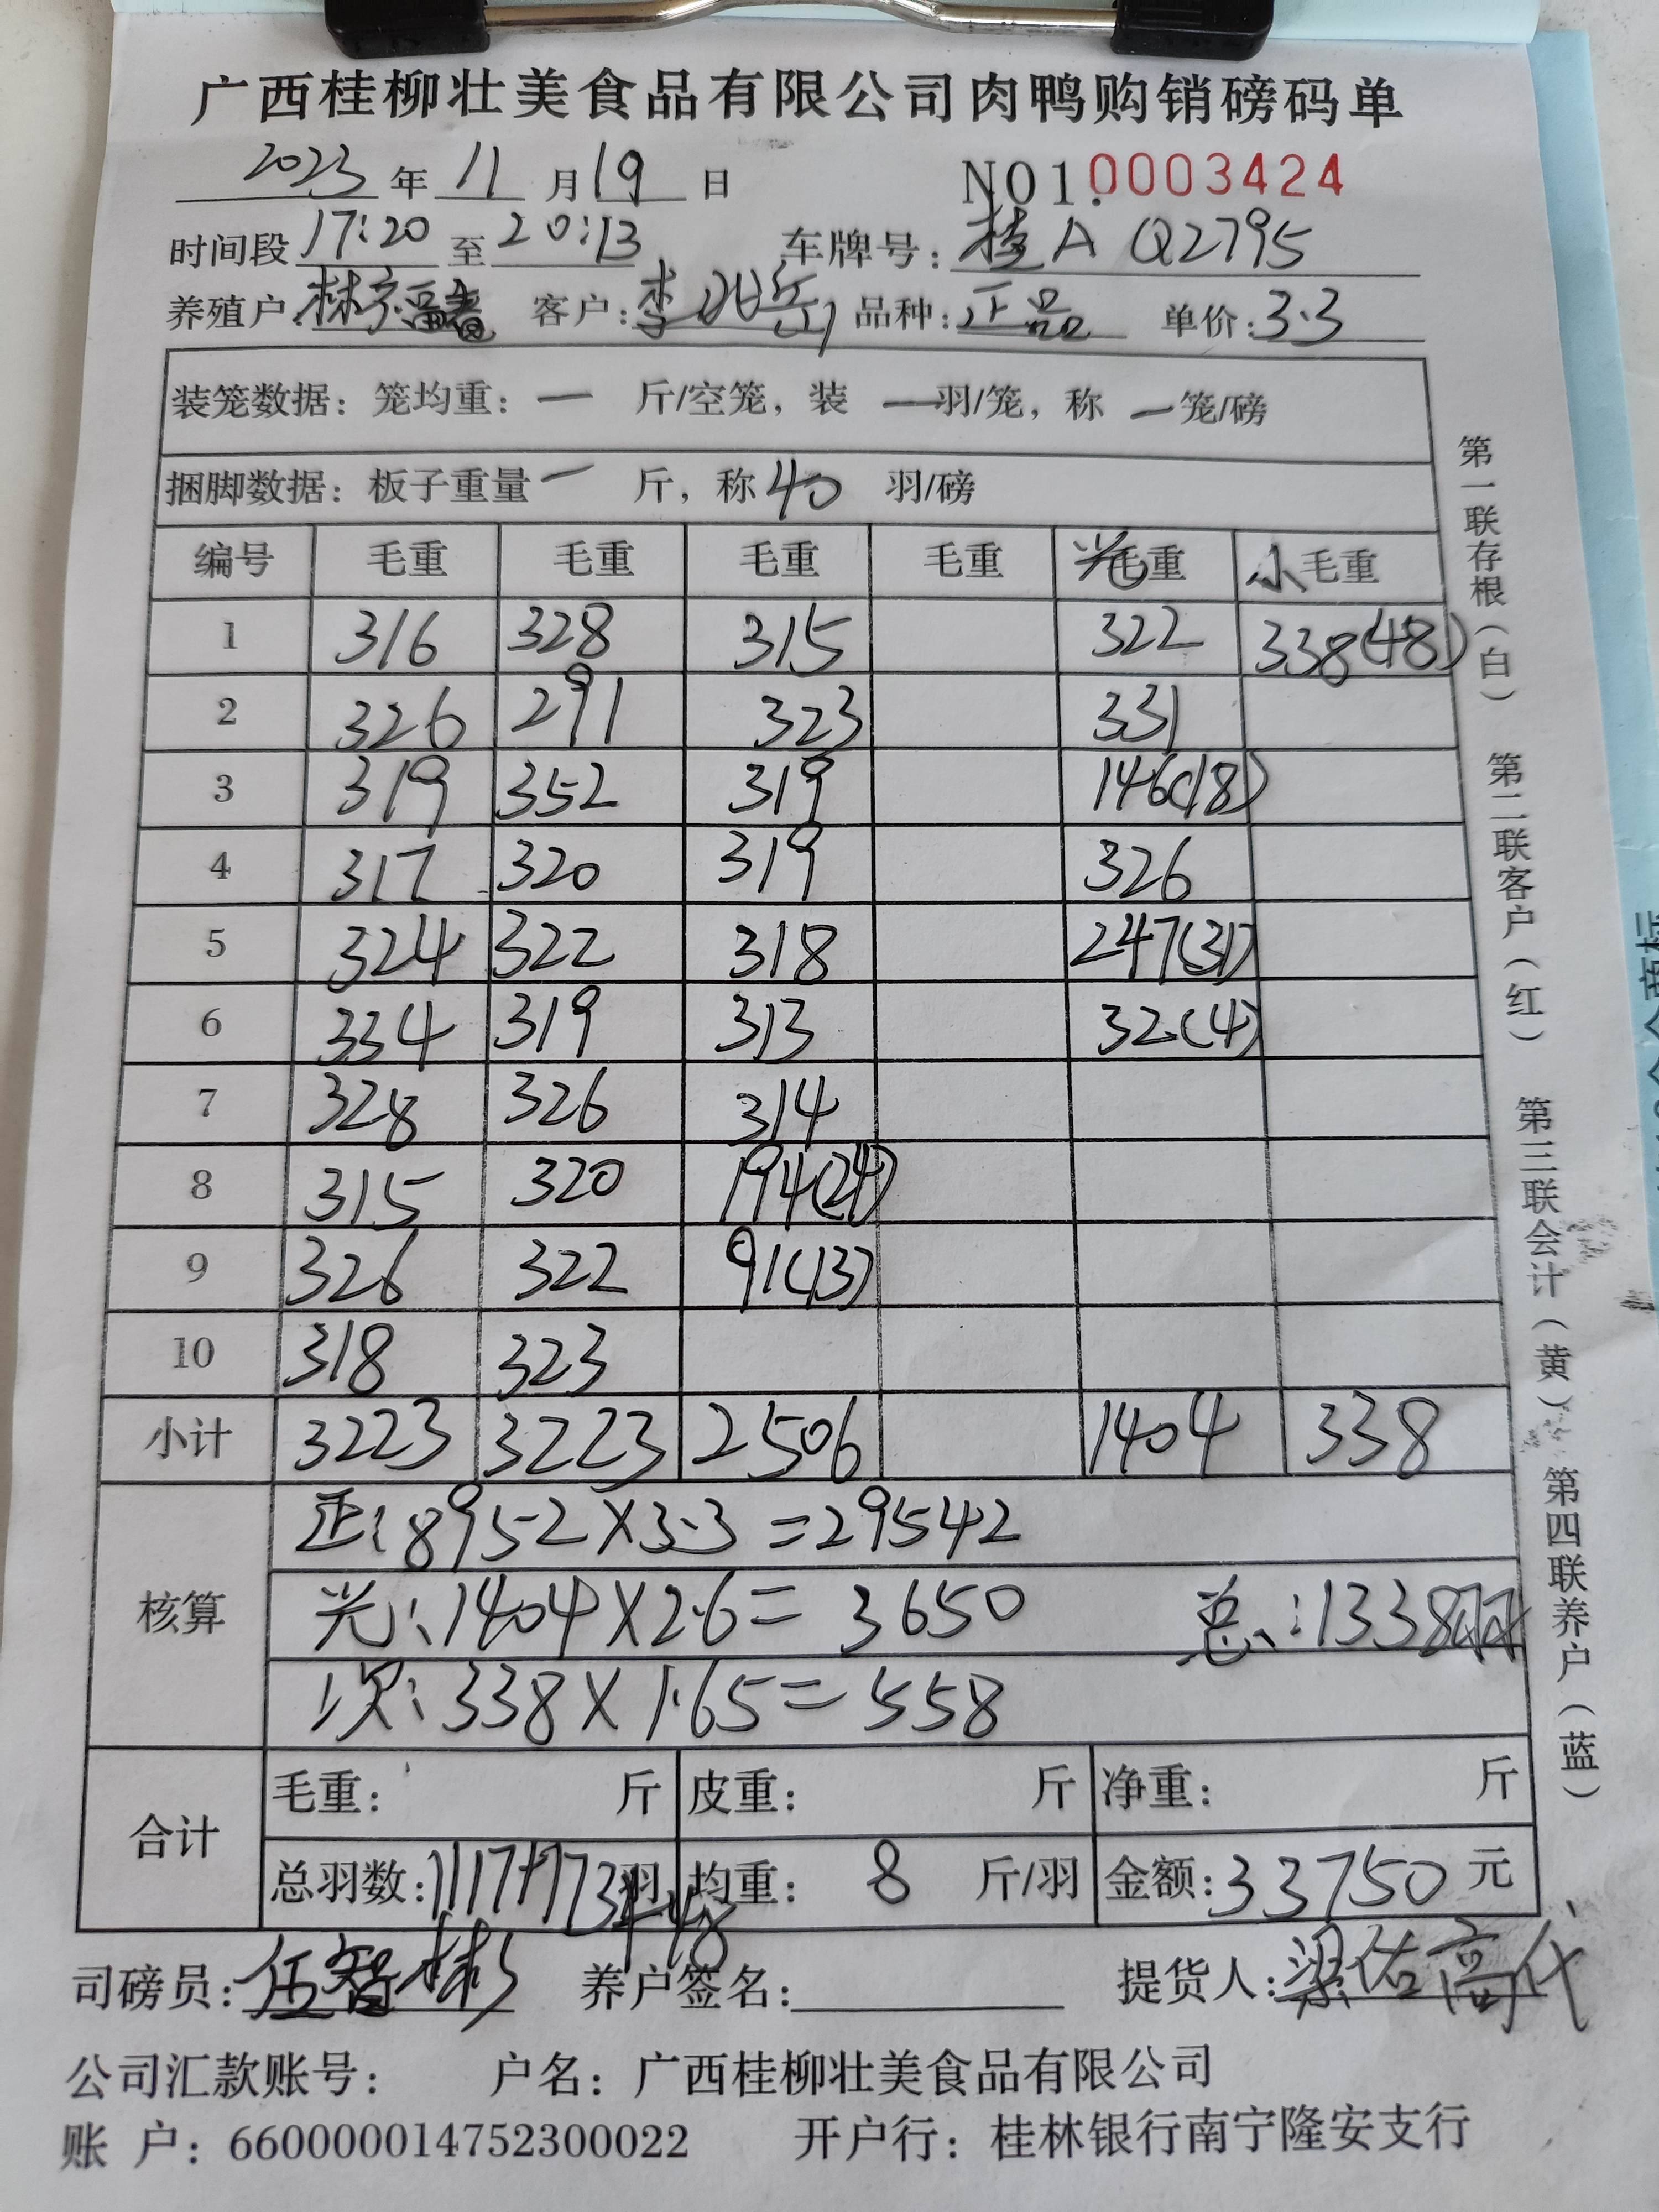 广西桂柳壮美食品有限公司肉鸭购销磅码单
2023 年 11 月 19 日 NO1.0003424
时间段 17:20 至 20:13 车牌号: 桂A Q2795
养殖户: 林 客户: 李 品种: 正品 单价: 3.3
装笼数据: 笼均重: 一 斤/空笼, 装 一 羽/笼, 称 一 笼/磅
捆脚数据: 板子重量 一 斤, 称 40 羽/磅
编号 毛重 毛重 毛重 毛重 光毛重 小毛重
1 316 328 315 322 338(48)
2 326 291 323 331
3 319 352 319 146(18)
4 317 320 319 326
5 324 322 318 247(31)
6 334 319 313 32(4)
7 328 326 314
8 315 320 194(24)
9 326 322 91(13)
10 318 323
小计 3223 3223 2506 1404 338
核算
正: 8952×3.3=29542
光: 1404×2.6=3650 总: 1338羽
次: 338×1.65=558
合计
毛重: 斤 皮重: 斤 净重: 斤
总羽数: 1117+173+48 羽 均重: 8 斤/羽 金额: 33750 元
司磅员: 伍智彬 养户签名: 提货人: 梁佑高代
公司汇款账号: 户名: 广西桂柳壮美食品有限公司
账 户: 660000014752300022 开户行: 桂林银行南宁隆安支行
第一联存根(白) 第二联客户(红) 第三联会计(黄) 第四联养户(蓝)